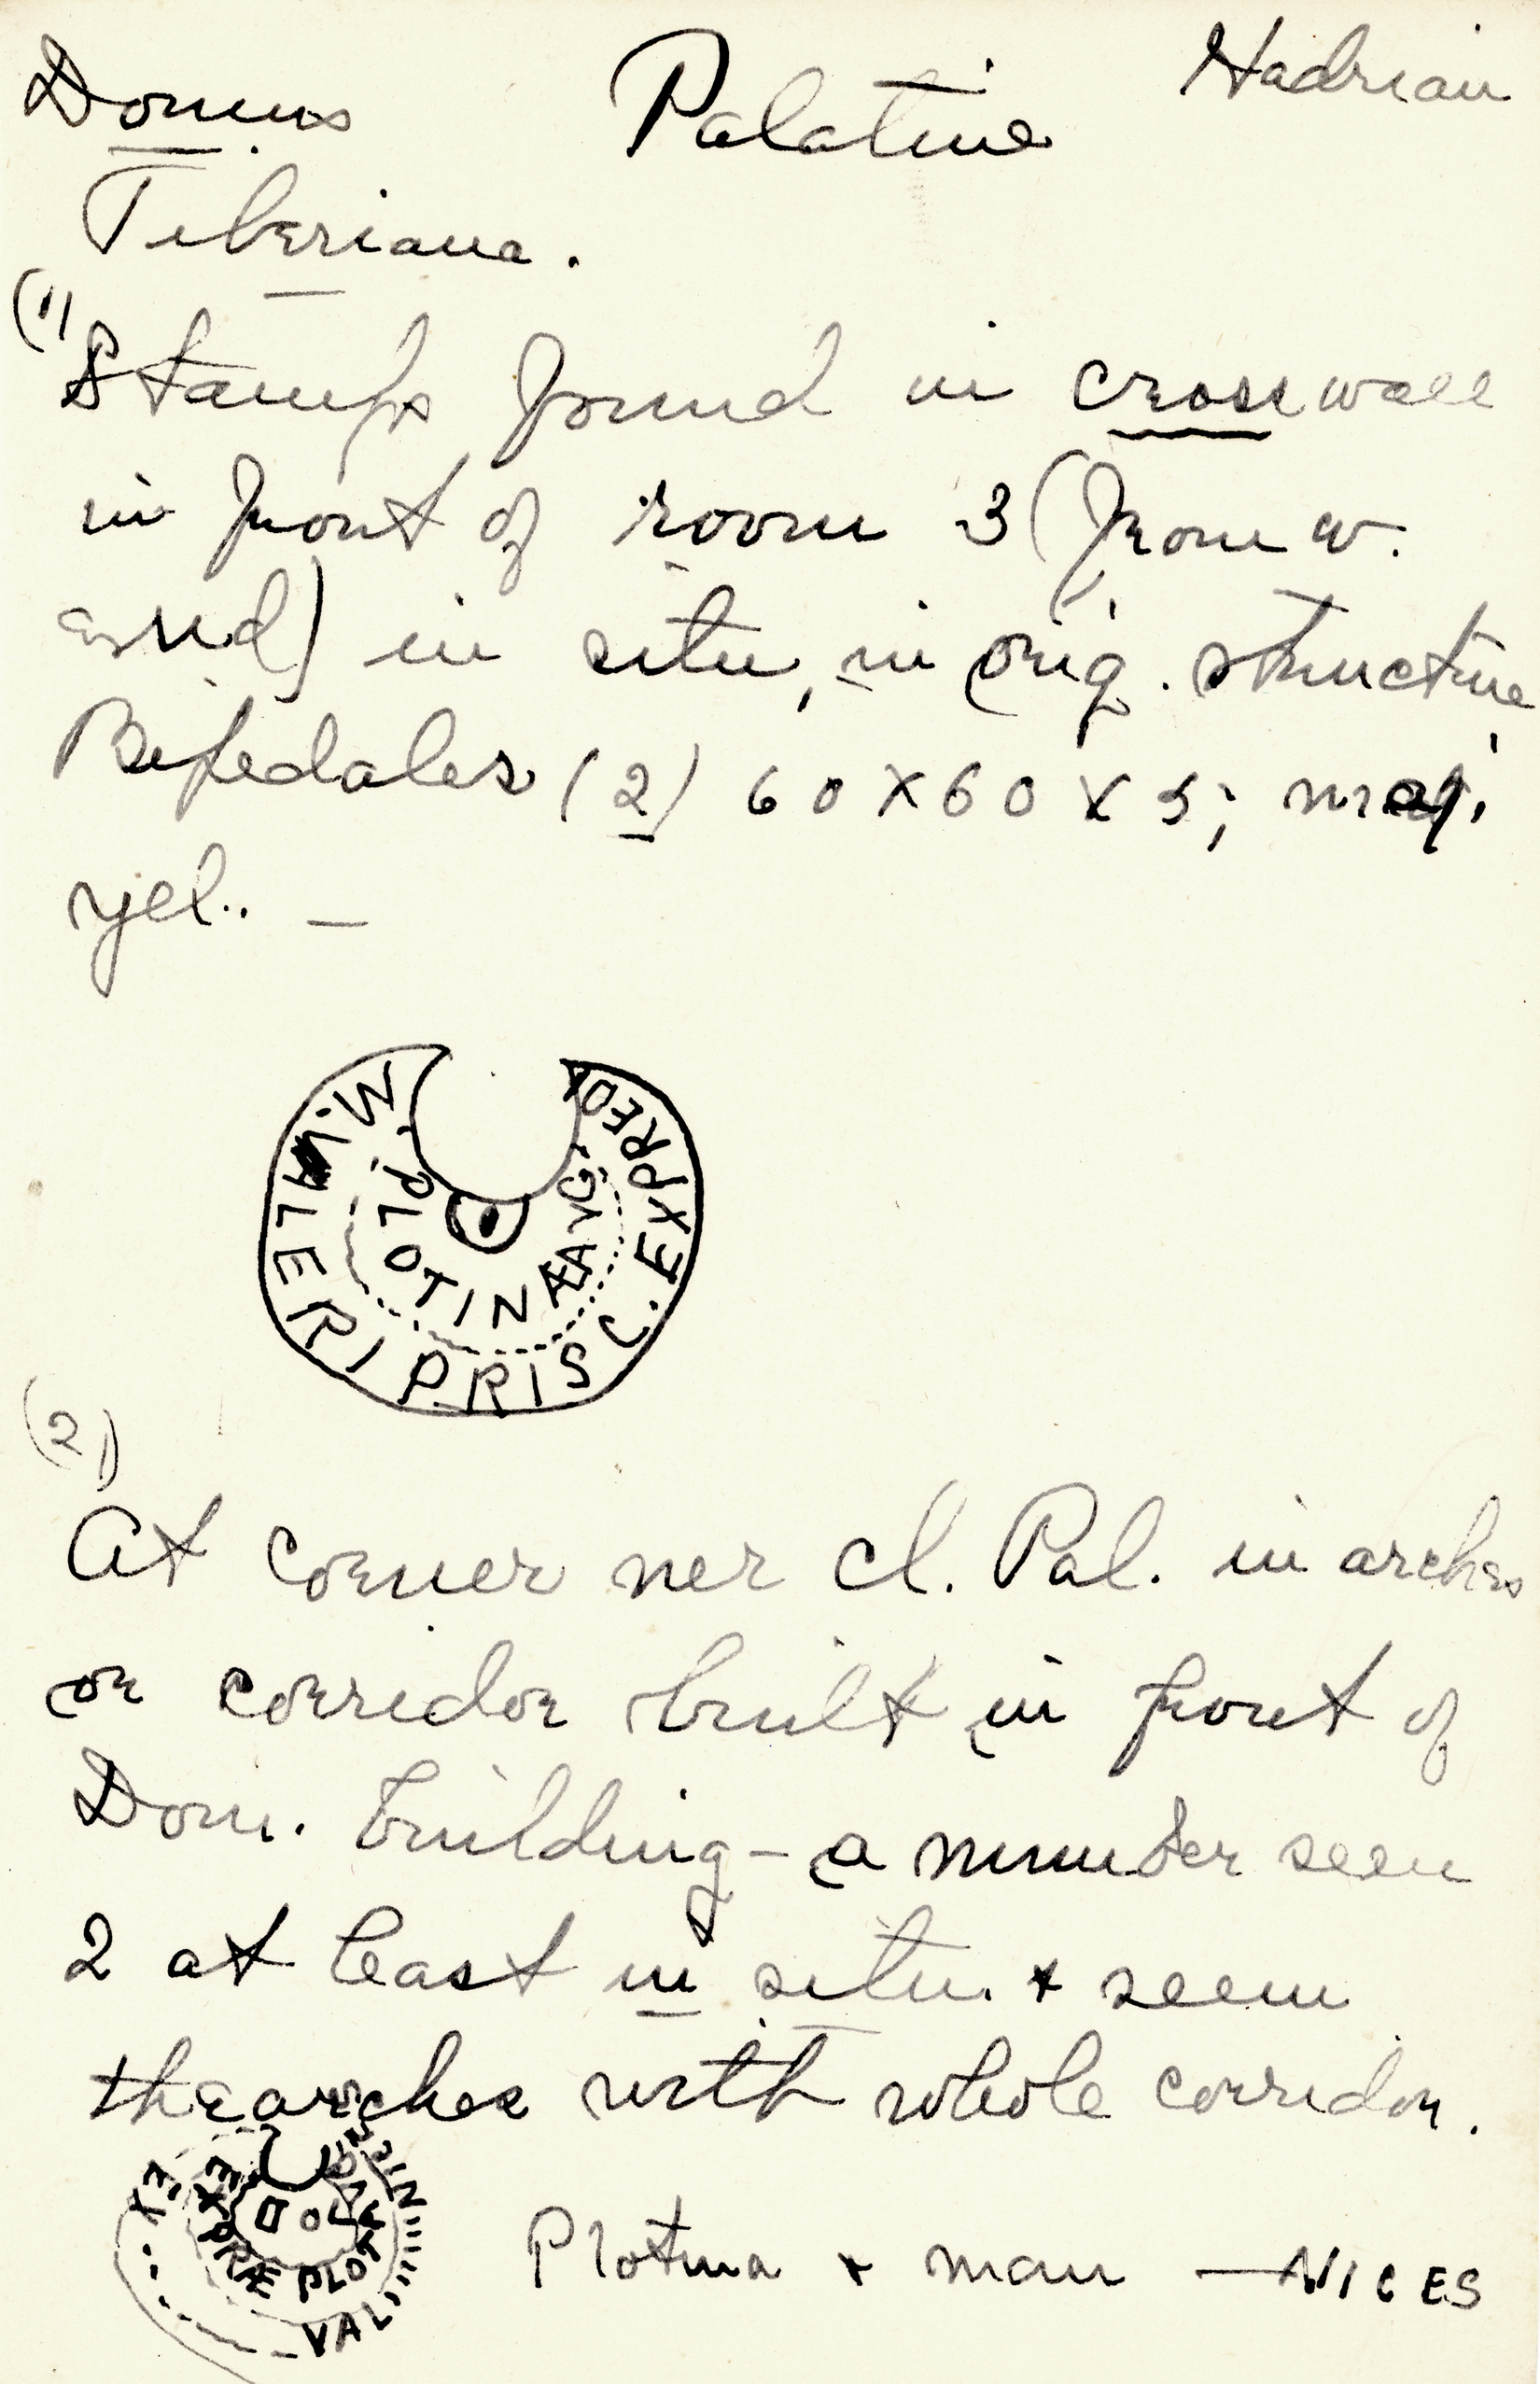 Domus Palatine Hadrian
Tiberiana.
(1)
Stamps found in crosswall
in front of room 3 (from w.
end) in situ, in orig. structure
Bipedales (2) 60 x 60 x 5;
yel.. —
M. VALERI PRISC. EX PRED
PLOTINAE AVG.
(2)
At corner ner cl. Pal. in arches
or corridor built in front of
Dom. building - a number seen
2 at least in situ. + seem
the arches with whole corridor.
EX PLOT
DOL
VAL
Plotina + man — NICES